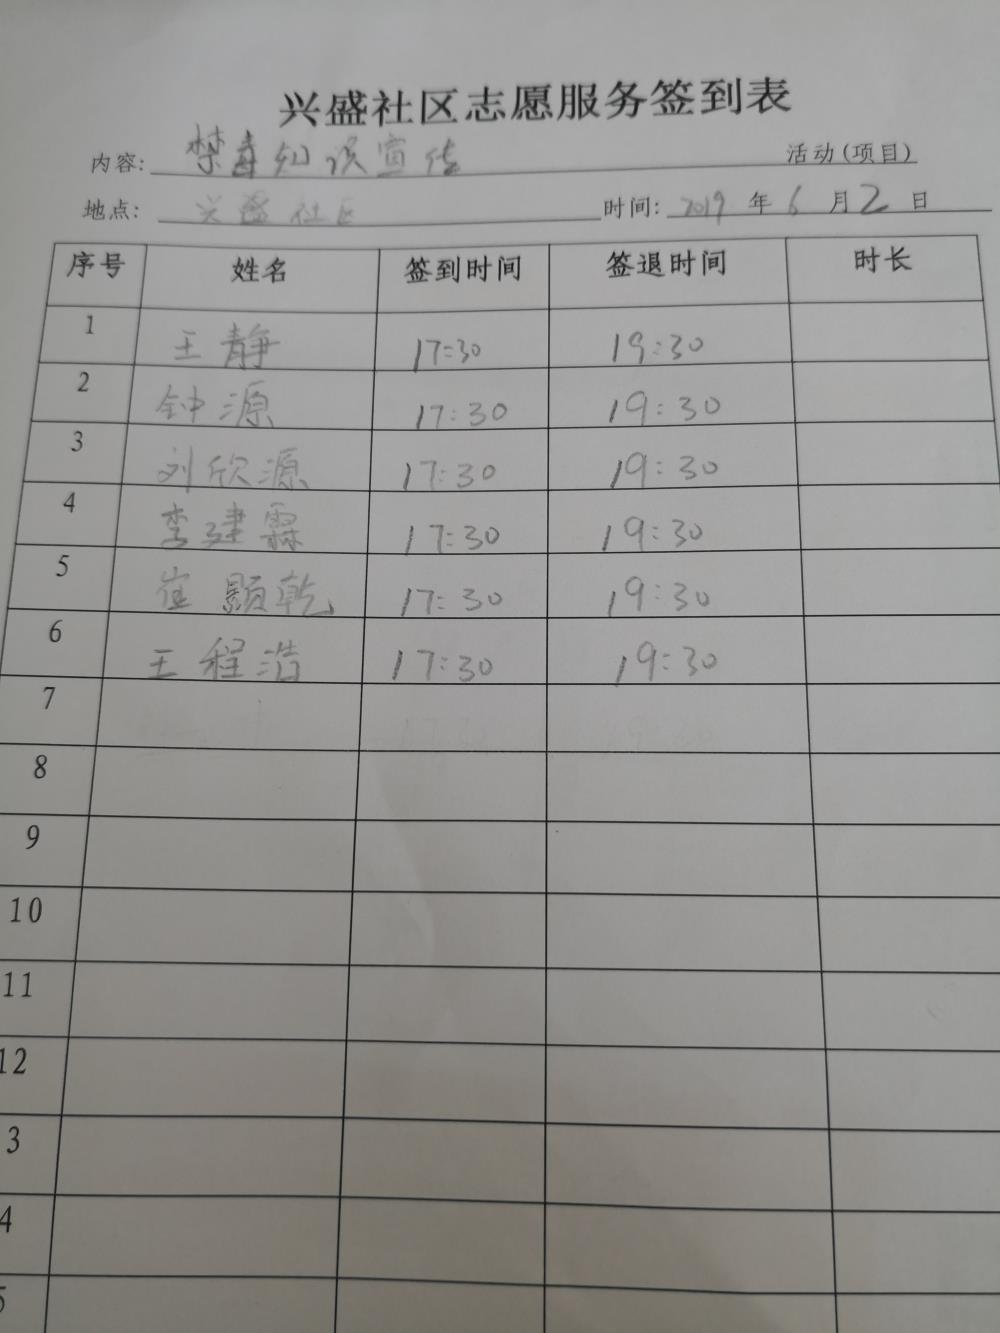 兴盛社区志愿服务签到表
内容: 禁毒知识宣传 活动(项目)
地点: 兴盛社区 时间: 2019 年 6 月 2 日
序号 姓名 签到时间 签退时间 时长
1 王静 17:30 19:30
2 钟源 17:30 19:30
3 刘欣源 17:30 19:30
4 李建霖 17:30 19:30
5 崔颢乾 17:30 19:30
6 王程浩 17:30 19:30
7
8
9
10
11
12
3
4
5